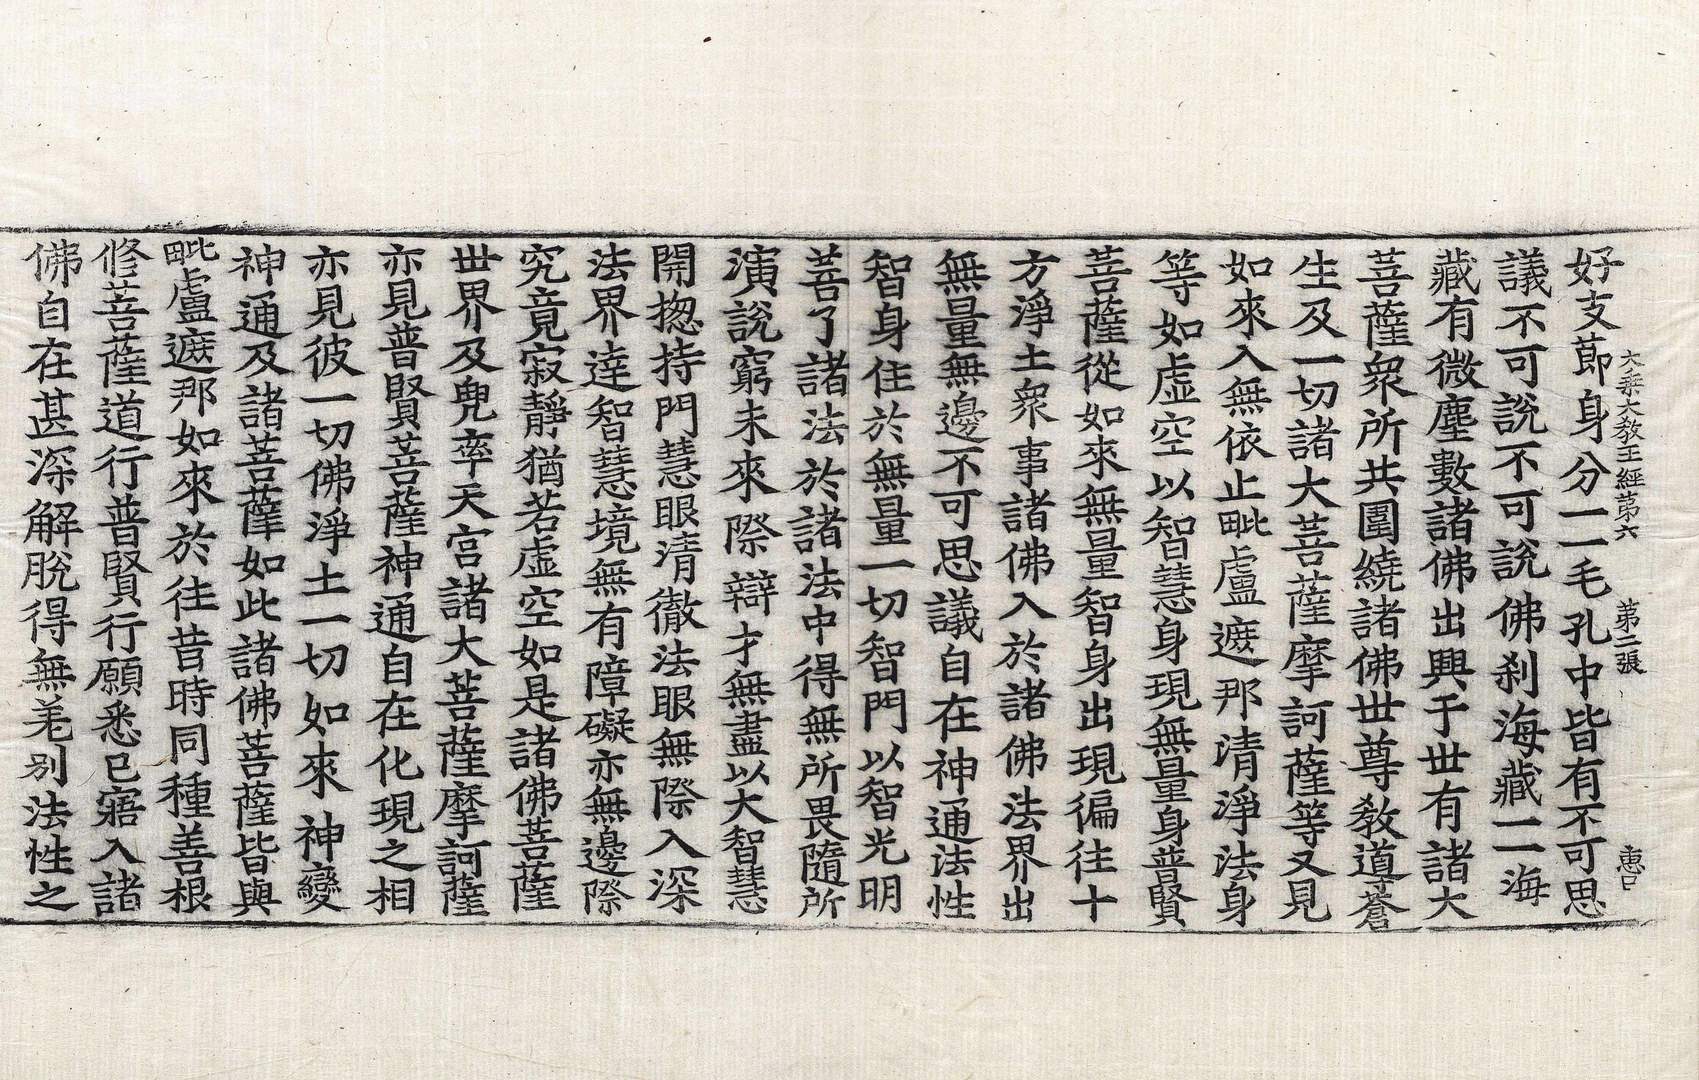 好支節身分一一毛孔中皆有不可思
大乘大教王經第六 第二張 惠
議不可說不可說佛剎海藏一一海
藏有微塵數諸佛出興于世有諸大
菩薩衆所共圍繞諸佛世尊敎導蒼
生及一切諸大菩薩摩訶薩等又見
如來入無依止毗盧遮那清淨法身
等如虛空以智慧身現無量身普賢
菩薩從如來無量智身出現徧往十
方淨土衆事諸佛入於諸佛法界出
無量無邊不可思議自在神通法性
智身住於無量一切智門以智光明
善了諸法於諸法中得無所畏隨所
演說窮未來際辯才無盡以大智慧
開揔持門慧眼清徹法眼無際入深
法界達智慧境無有障礙亦無邊際
究竟寂靜猶若虛空如是諸佛菩薩
世界及兜率天宮諸大菩薩摩訶薩
亦見普賢菩薩神通自在化現之相
亦見彼一切佛淨土一切如來神變
神通及諸菩薩如此諸佛菩薩皆與
毗盧遮那如來於往昔時同種善根
修菩薩道行普賢行願悉已寤入諸
佛自在甚深解脫得無差别法性之